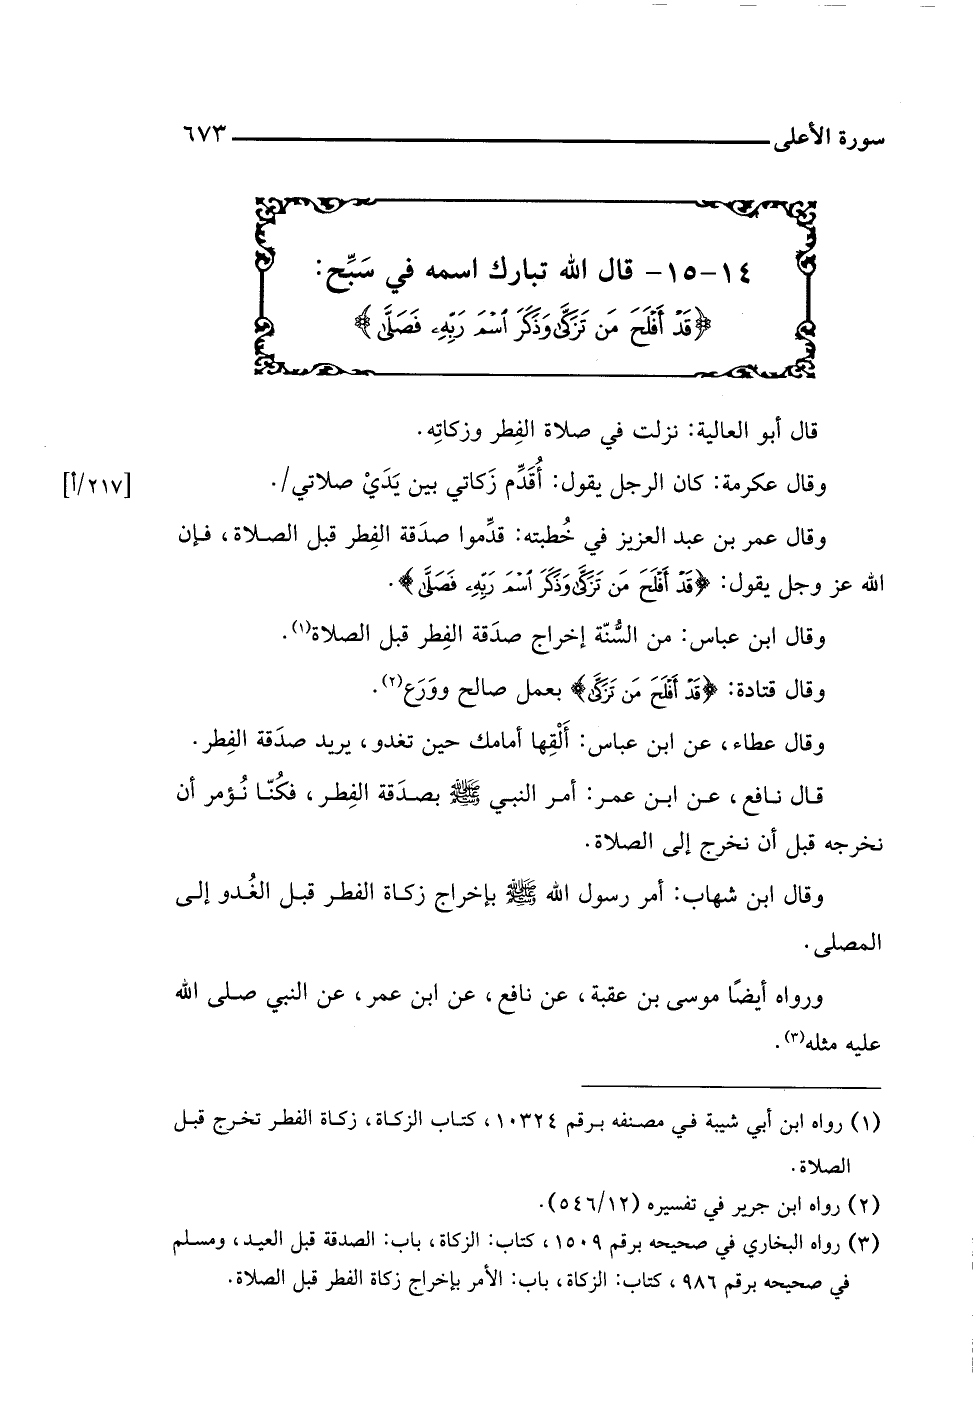 سورة الأعلى ٦٧٣
١٤-١٥- قال الله تبارك اسمه في سَبِّح:
﴿قَدْ أَفْلَحَ مَن تَزَكَّىٰ وَذَكَرَ ٱسْمَ رَبِّهِۦ فَصَلَّىٰ﴾
قال أبو العالية: نزلت في صلاة الفِطر وزكاتِه.
وقال عكرمة: كان الرجل يقول: أُقَدِّم زَكاتي بين يَدَيْ صلاتي/. [٢١٧/أ]
وقال عمر بن عبد العزيز في خُطبته: قدِّموا صدَقة الفِطر قبل الصلاة، فإن
الله عز وجل يقول: ﴿قَدْ أَفْلَحَ مَن تَزَكَّىٰ وَذَكَرَ ٱسْمَ رَبِّهِۦ فَصَلَّىٰ﴾.
وقال ابن عباس: من السُّنّة إخراج صدَقة الفِطر قبل الصلاة(١).
وقال قتادة: ﴿قَدْ أَفْلَحَ مَن تَزَكَّىٰ﴾ بعمل صالح ووَرَع(٢).
وقال عطاء، عن ابن عباس: أَلْقِها أمامك حين تغدو، يريد صدَقة الفِطر.
قال نافع، عن ابن عمر: أمر النبي ﷺ بصدَقة الفِطر، فكُنّا نُؤمر أن
نخرجه قبل أن نخرج إلى الصلاة.
وقال ابن شهاب: أمر رسول الله ﷺ بإخراج زكاة الفطر قبل الغُدو إلى
المصلى.
ورواه أيضًا موسى بن عقبة، عن نافع، عن ابن عمر، عن النبي صلى الله
عليه مثله(٣).
(١) رواه ابن أبي شيبة في مصنفه برقم ١٠٣٢٤، كتاب الزكاة، زكاة الفطر تخرج قبل
الصلاة.
(٢) رواه ابن جرير في تفسيره (٥٤٦/١٢).
(٣) رواه البخاري في صحيحه برقم ١٥٠٩، كتاب: الزكاة، باب: الصدقة قبل العيد، ومسلم
في صحيحه برقم ٩٨٦، كتاب: الزكاة، باب: الأمر بإخراج زكاة الفطر قبل الصلاة.